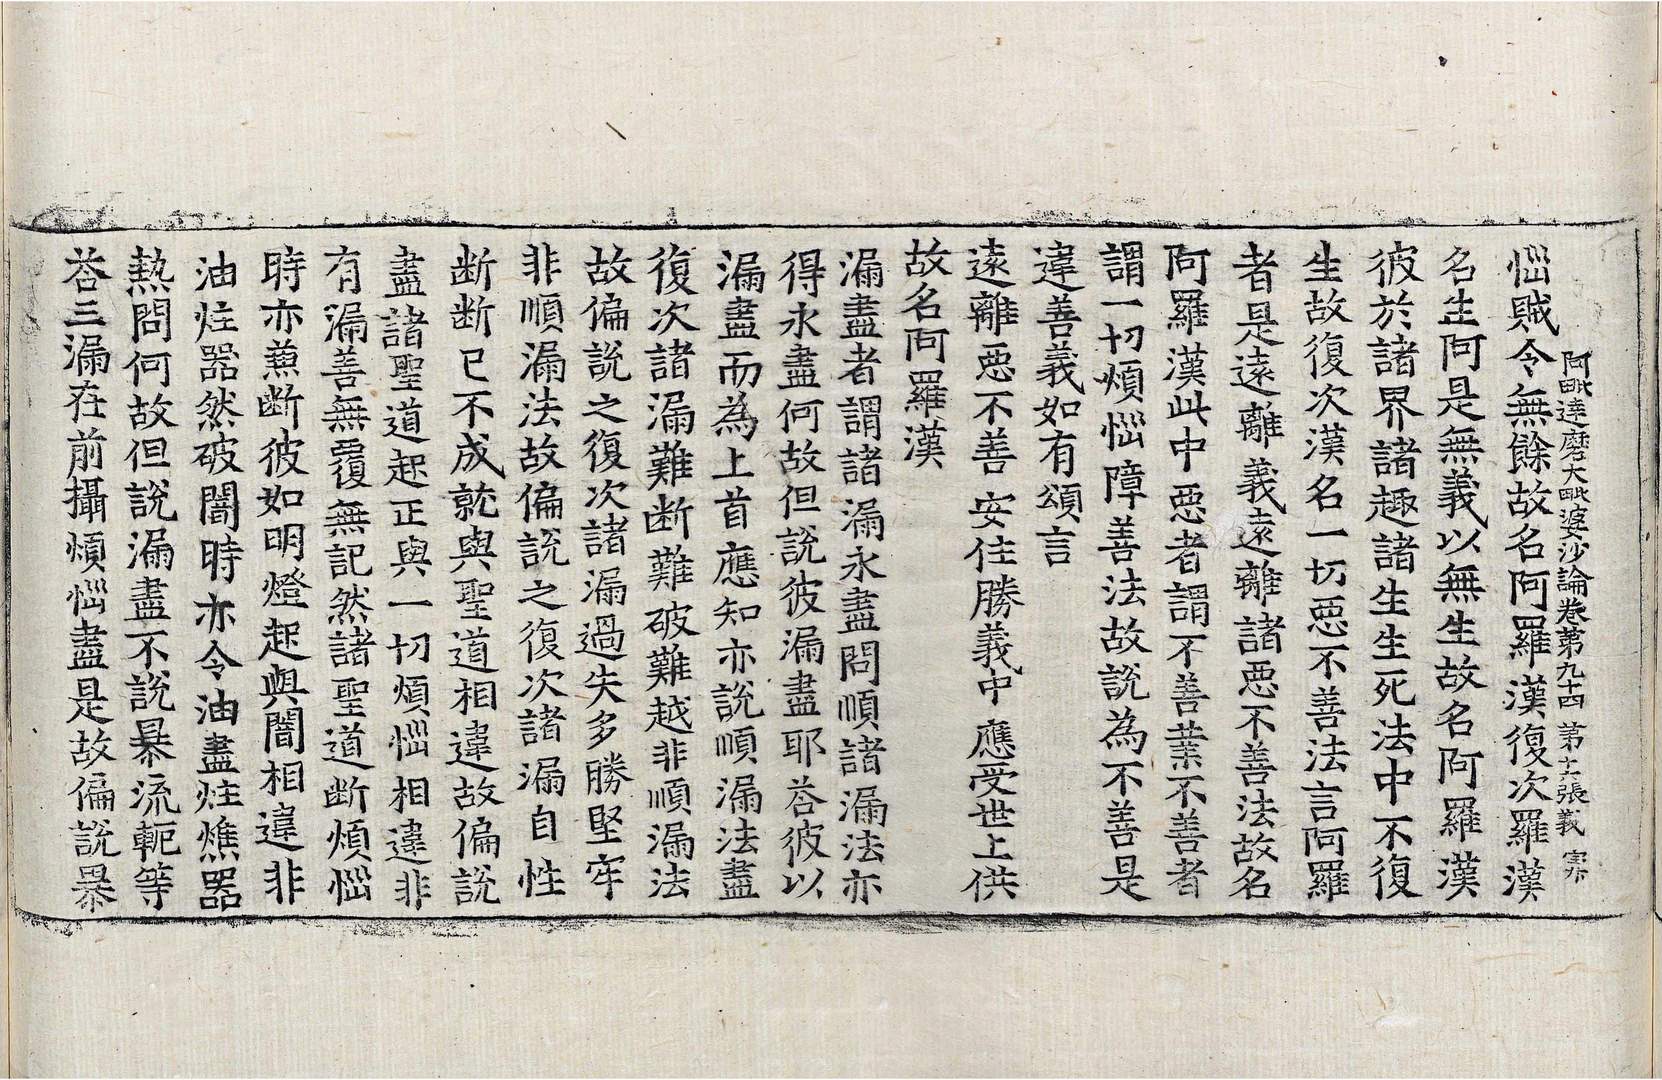 阿毗達磨大毗婆沙論卷第九十四 第 張 義
惱賊令無餘故名阿羅漢復次羅漢
名生阿是無義以無生故名阿羅漢
彼於諸界諸趣諸生生死法中不復
生故復次漢名一切惡不善法言阿羅
者是遠離義遠離諸惡不善法故名
阿羅漢此中惡者謂不善業不善者
謂一切煩惱障善法故說為不善是
違善義如有頌言
遠離惡不善 安住勝義中 應受世上供
故名阿羅漢
漏盡者謂諸漏永盡問順諸漏法亦
得永盡何故但說彼漏盡耶荅彼以
漏盡而為上首應知亦說順漏法盡
復次諸漏難断難破難越非順漏法
故偏說之復次諸漏過失多勝堅牢
非順漏法故偏說之復次諸漏自性
断断已不成就與聖道相違故偏說
盡諸聖道起正與一切煩惱相違非
有漏善無覆無記然諸聖道断煩惱
時亦兼断彼如明燈起與闇相違非
油炷器然破闇時亦令油盡炷燋器
熱問何故但說漏盡不說暴流軛等
荅三漏在前攝煩惱盡是故偏說暴